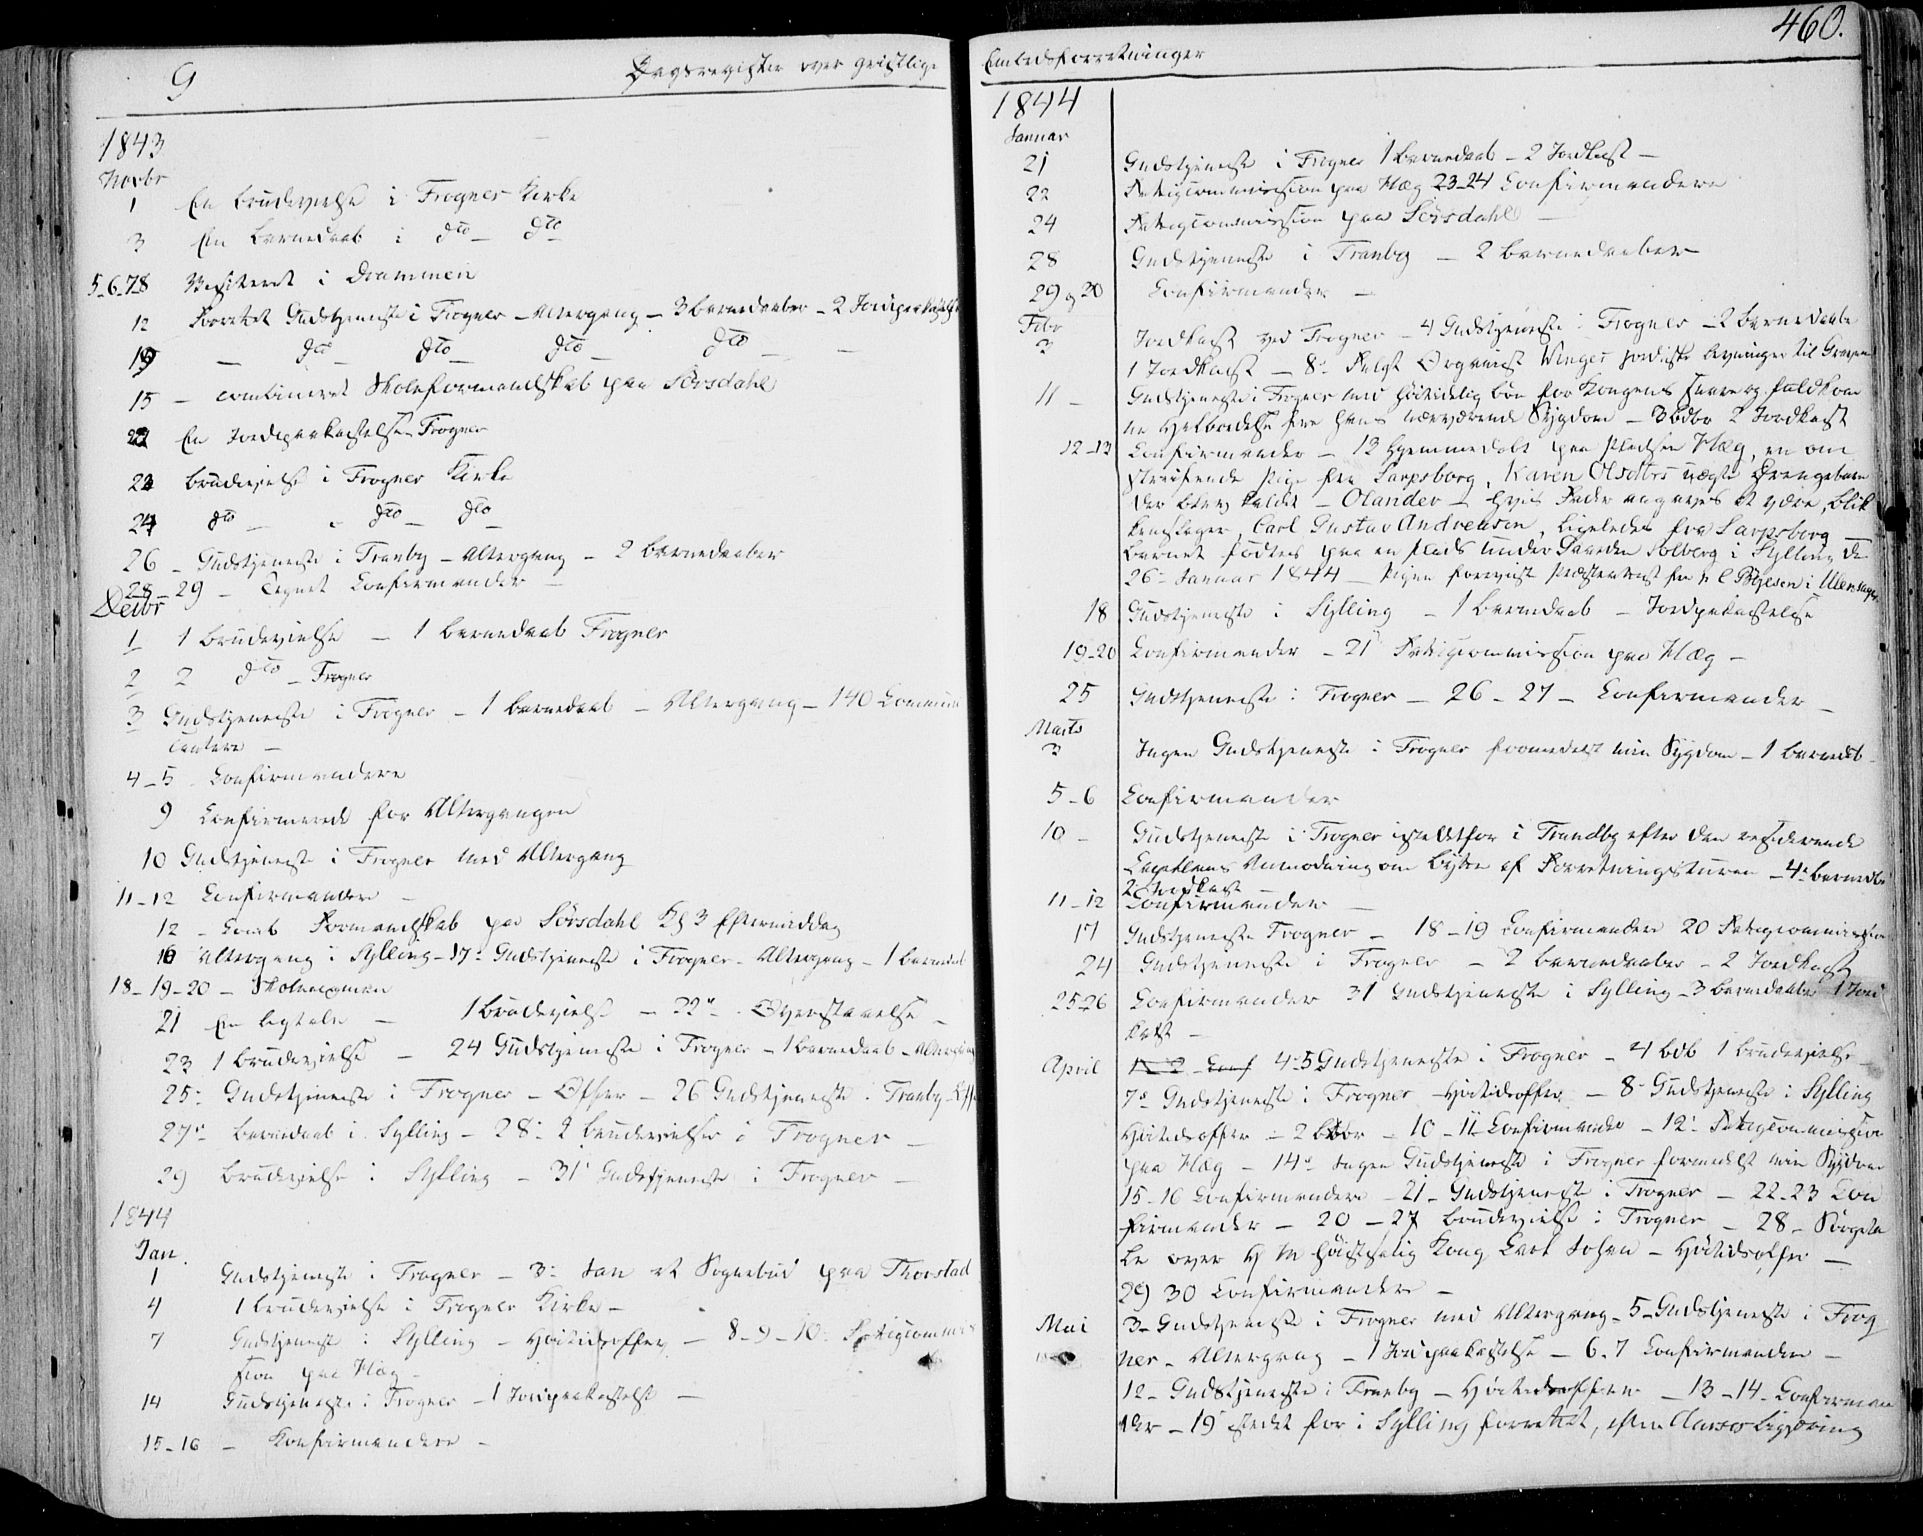 9
Dagsregister over geistlige
1843
Novbr
1 En Brudevielse i Frogner Kirke
3 En Barnedaab i dto dto
5-6-78 Visiteret i Drammen
12 Forrettet Gudstjeneste i Frogner - Altergang - 3 Barnedaaber - 2
19 - dto - dto - dto - dto -
15 - combineret Skoleformandskab paa Sörsdahl
En Jordpaakastelse Frogner
Brudevielse i Frogner Kirke
24 dto - dto - dto
26 - Gudstjeneste i Tranby - Altergang - 2 Barnedaaber
28-29 - Confirmander -
Decbr
1 1 Brudevielse - 1 Barnedaab Frogner
2 2 dto - Frogner
3 Gudstjeneste i Frogner - 1 Barnedaab - Altergang - 140 Communi
cantere -
4-5 Confirmandere
9 Confirmerede for Altergangen
10 Gudstjeneste i Frogner med Altergang
11-12 Confirmandere -
12 - Comb Formandskab paa Sörsdahl Kl 3 Eftermiddag
16 Altergang i Sylling - 17- Gudstjeneste i Frogner - Altergang - 1 Barnedaab
18-19-20 - Skoleexamen
21 En Ligtale - 1 Brudevielse - 22-
23 1 Brudevielse - 24 Gudstjeneste i Frogner - 1 Barnedaab - Altergang
25- Gudstjeneste i Frogner - Offer - 26 Gudstjeneste i Tranby -
27- Barnedaab i Sylling - 28- 2 Brudevielser i Frogner -
29 Brudevielse i Sylling - 31 Gudstjeneste i Frogner -
1844
Jan.
1 Gudstjeneste i Frogner - 3- Jan et Sognebud paa Thorstad
4 1 Brudevielse i Frogner Kirke -
7 Gudstjeneste i Sylling - Höitidsoffer - 8-9-10- Fattigcommis
sion paa Hæg -
14 Gudstjeneste i Frogner - 1 Jordpaakastelse -
15-16 - Konfirmandere -
460.
Embedsforretninger
1844
Januar
21 Gudstjeneste i Frogner 1 Barnedaab - 2 Jordkast -
22 Fattigcommission paa Hæg 23-24 Confirmandere
24 Fattigcommission paa Sörsdahl -
28 Gudstjeneste i Tranby - 2 Barnedaaber
29 og 30 Confirmander -
Febr
3 Jordkast ved Frogner - 4 Gudstjeneste i Frogner - 2 Barnedaabe
1 Jordkast - 8- Fulgt Organist Winges jordiske Levninger til Graven
11 - Gudstjeneste i Frogner med höitidelig Bön for Kongens snare og fuldkom
ne Helbredelse fra Hans nærværende Sygdom - 3 Bdbr 2 Jordkast
12-13 Confirmander - 13 Hjemmedöbt paa Pladsen Hæg, en om
streifende Pige fra Sarpsborg, Karen Olsdtrs uægte Drengebarn
der blev kaldet - Olander - Hvis Fader angaves at være, Blik
kenslager, Carl Gustav Andreasen, ligeledes fra Sarpsborg -
Barnet födtes paa en Plads under Gaarden Solberg i Sylling de
26- Januar 1844 - Pigen foreviste Præsteattest fra C Böyesen i Ullensager
18 Gudstjeneste i Sylling - 1 Barnedaab - Jordpakastelse
19-20 Confirmander - 21 Fattigcommission paa Hæg -
25 Gudstjeneste i Frogner - 26-27 - Confirmander -
Marts
3 Ingen Gudstjeneste i Frogner formedelst min Sygdom - 1 Barnedb
5-6 Confirmander
10 - Gudstjeneste i Frogner istedetfor i Trandby efter den residerende
Capellans Anmodning om Bytte af Forretningsturen - 4 Barnedb
2 Jordkast -
11-12 Confirmander -
17 Gudstjeneste Frogner - 18-19 Confirmander 20 Fattigcommission
24 Gudstjeneste i Frogner - 2 Barnedaaber - 2 Jordkast
25-26 Confirmander 31 Gudstjeneste i Sylling - 3 Barnedaaber 1 Jord
kast -
April 1-2 Conf 4-5 Gudstjeneste i Frogner - 4 bdb 1 Brudevielse
7- Gudstjeneste i Frogner Höitidsoffer - 8- Gudstjeneste i Sylling
Höitidsoffer - 2 bdbr - 10-11- Confirmander - 12- Fattigcommission
paa Hæg - 14- Ingen Gudstjeneste i Frogner formedelst min Sygdom
15-16 Confirmandere - 21- Gudstjeneste i Frogner - 22-23 Con
firmander - 20 - 27 Brudevielse i Frogner - 28- Sörgeta
le over H M höistsalig Kong Carl Johan - Höitidsoffer -
29 30 Confirmander -
Mai 3- Gudstjeneste i Frogner med Altergang - 5- Gudstjeneste i Frog
ner - Altergang - 1 Jordpaakastelse - 6-7 Confirmander -
12- Gudstjeneste i Tranby - Höitidsoffer - 13-14- Confirman
der - 19 for i Sylling forrettet, efter